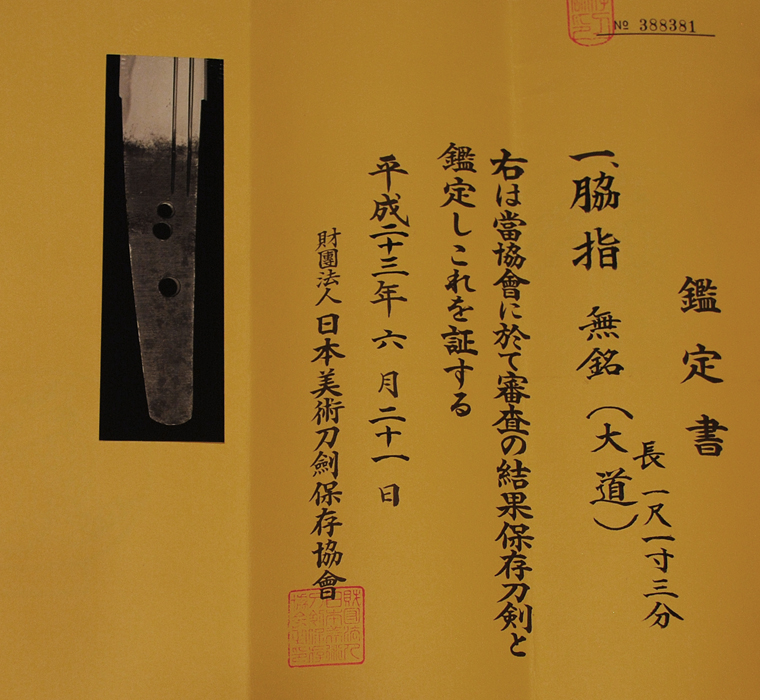 № 388381
鑑定書
一、脇指 無銘(大道)
長 一尺一寸三分
右は當協會に於て審査の結果保存刀剣と
鑑定しこれを証する
平成二十三年六月二十一日
財團法人日本美術刀劍保存協會